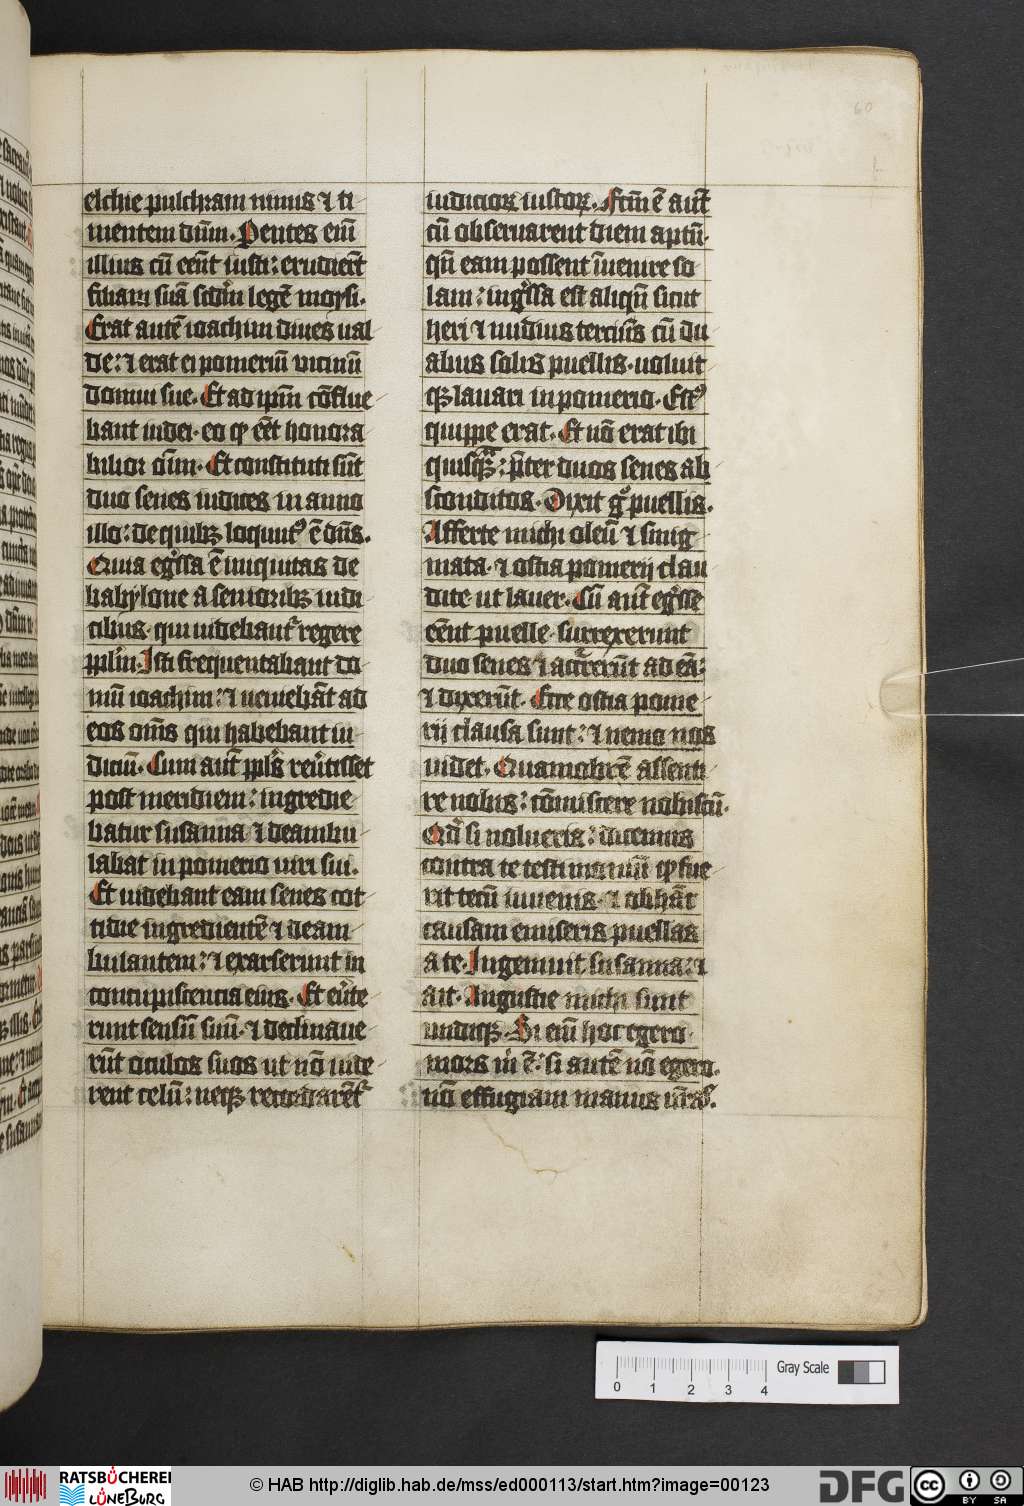 elchie pulchram nimis ⁊ ti
mentem dn̄m. Pentes eni̅
illius cu̅ ee̅nt iusti: erudieru̅t
filiam sua̅ scdm̅ lege̅ moysi.
Erat aute̅ ioachim diues ual
de: ⁊ erat ei pomeriu̅ uicinu̅
domui sue. Et ad ipm̅ co̅flue
bant iudei. eo ꝙ ee̅t honora
bilior om̅i̅. Et constituti su̅t
duo senes iudices in anno
illo: de quibꝫ loqu̅t᷒ e̅ dn̅s.
Quia eg̊ssa e̅ iniquitas de
babylone a senioribꝫ iudi
cibus. qui uidebant᷒ regere
ppl̅m. Isti frequentabant do
mu̅ ioachim: ⁊ ueniеba̅t ad
eos om̅s qui habebant iu
diciu̅. Cum aut̅ ppl̅s reu̅tisset
post meridiem: ingredie
batur susanna ⁊ deambu
labat in pomerio uiri sui.
Et uidebant eam senes cot
tidie ingrediente̅ ⁊ deam
bulantem: ⁊ exarserunt in
concupiscencia eius. Et eu̅te
runt sensu̅ suu̅. ⁊ declinaue
ru̅t oculos suos ut no̅ uide
rent celu̅: neqꝫ recordare̅t᷒
iudicioꝝ iustoꝝ. Fc̅m e̅ aut̅
cu̅ obseruarent diem aptu̅.
qn̅ eam possent i̅uenire so
lam: ing̊ssa est aliqn̅ sicut
heri ⁊ nudius tercius cu̅ du
abus solis puellis. uoluit
qꝫ lauari in pomerio. Est᷒
quippe erat. Et no̅ erat ibi
quisqꝫ: p̅ter duos senes ab
sconditos. Dixit gͦ puellis.
Afferte michi oleu̅ ⁊ smig
mata. ⁊ ostia pomerij clau
dite ut lauer. Cu̅ aut̅ eg̊sse
ee̅nt puelle. surrexerunt
duo senes ⁊ accurreru̅t ad ea̅:
⁊ dixeru̅t. Ecce ostia pome
rij clausa sunt: ⁊ nemo nos
uidet. Quamobre̅ assenti
re nobis: co̅miscere nobiscu̅.
Qd̅ si nolueris: dicemus
contra te testimoniu̅ ꝙ fue
rit tecu̅ iuuenis. ⁊ ob ha̅c
causam emiseris puellas
a te. Ingemuit susanna: ⁊
ait. Angustie michi sunt
undiqꝫ. Si eni̅ hoc egero.
mors m̅ e̅: si aute̅ no̅ egero.
no̅ effugiam manus ur̅as.
60
0 1 2 3 4
Gray Scale
RATSBÜCHEREI
LÜNEBURG
© HAB http://diglib.hab.de/mss/ed000113/start.htm?image=00123
DFG
cc BY SA